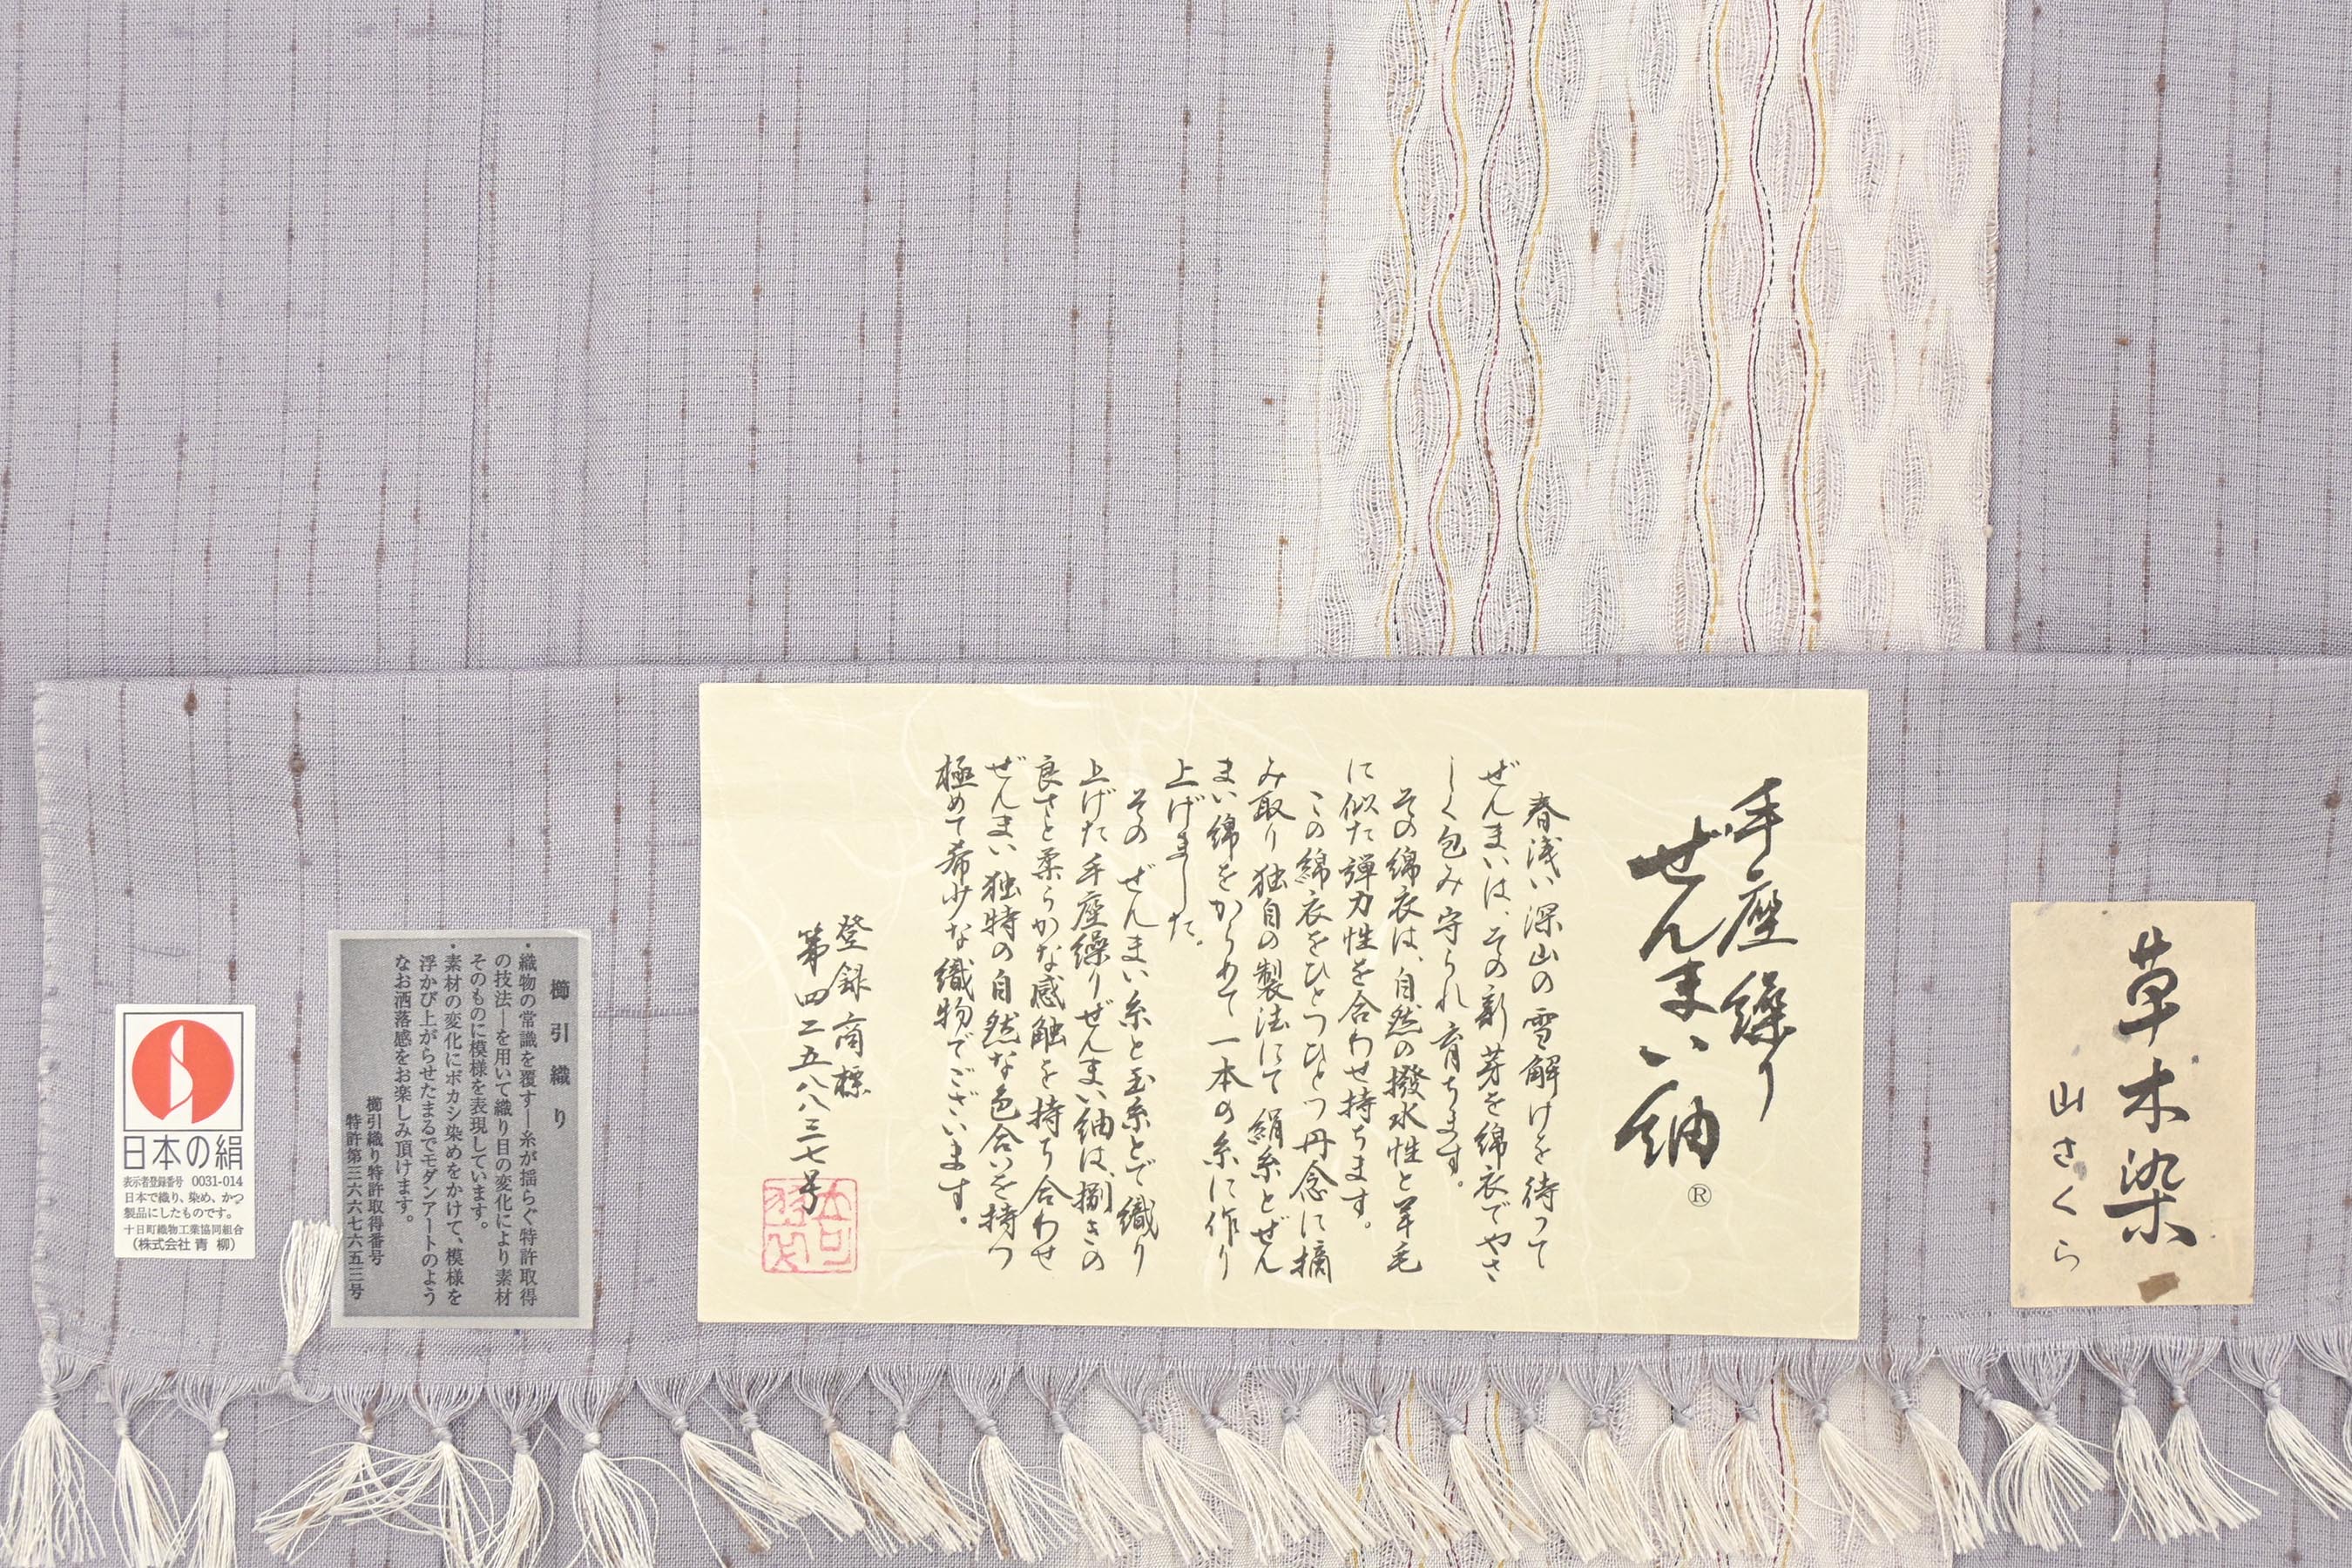 草木染
山さくら
手座繰り
ぜんまい紬
®
春浅い深山の雪解けを待って
ぜんまいは、その新芽を綿衣でやさ
しく包み守られ育ちます。
その綿衣は、自然の撥水性と羊毛
に似た弾力性を合わせ持ちます。
この綿衣をひとつひとつ丹念に摘
み取り独自の製法にて絹糸とぜん
まい綿をからめて一本の糸に作り
上げました。
そのぜんまい糸と玉糸とで織り
上げた手座繰りぜんまい紬は、捌きの
良さと柔らかな感触を持ち合わせ
ぜんまい独特の自然な色合いを持つ
極めて希少な織物でございます。
登録商標
第四二五八八三七号
曛引織り
・織物の常識を覆す―糸が揺らぐ特許取得
の技法―を用いて織り目の変化により素材
そのものに模様を表現しています。
・素材の変化にボカシ染めをかけて、模様を
浮かび上がらせたまるでモダンアートのよう
なお洒落感をお楽しみ頂けます。
櫛引織り特許取得番号
特許第三六六七六五三号
日本の絹
表示者登録番号 0031-014
日本で織り、染め、かつ
製品にしたものです。
十日町織物工業協同組合
(株式会社 青 柳)